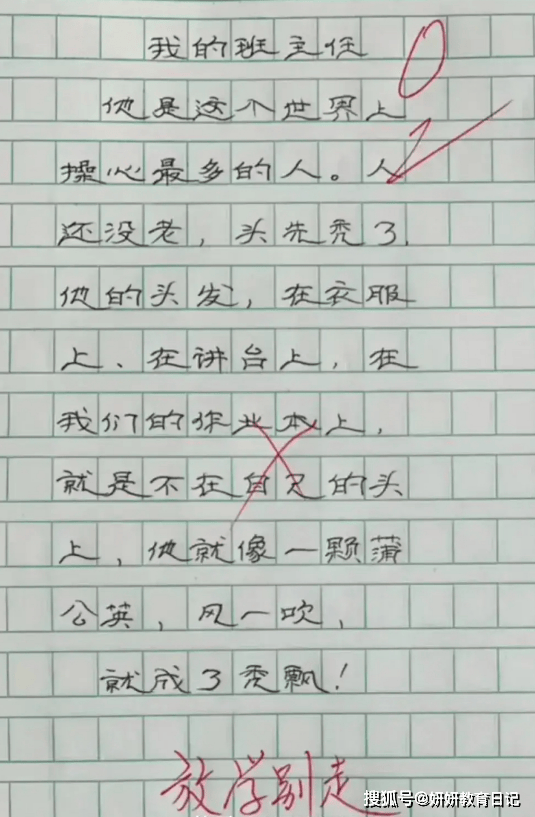 我的班主任
0
他是这个世界上
操心最多的人。人
还没老，头先秃了.
他的头发，在衣服
上、在讲台上，在
我们的作业本上，
就是不在自己的头
上，他就像一颗蒲
公英，风一吹，
就成了秃瓢！
放学别走
搜狐号@妍妍教育日记